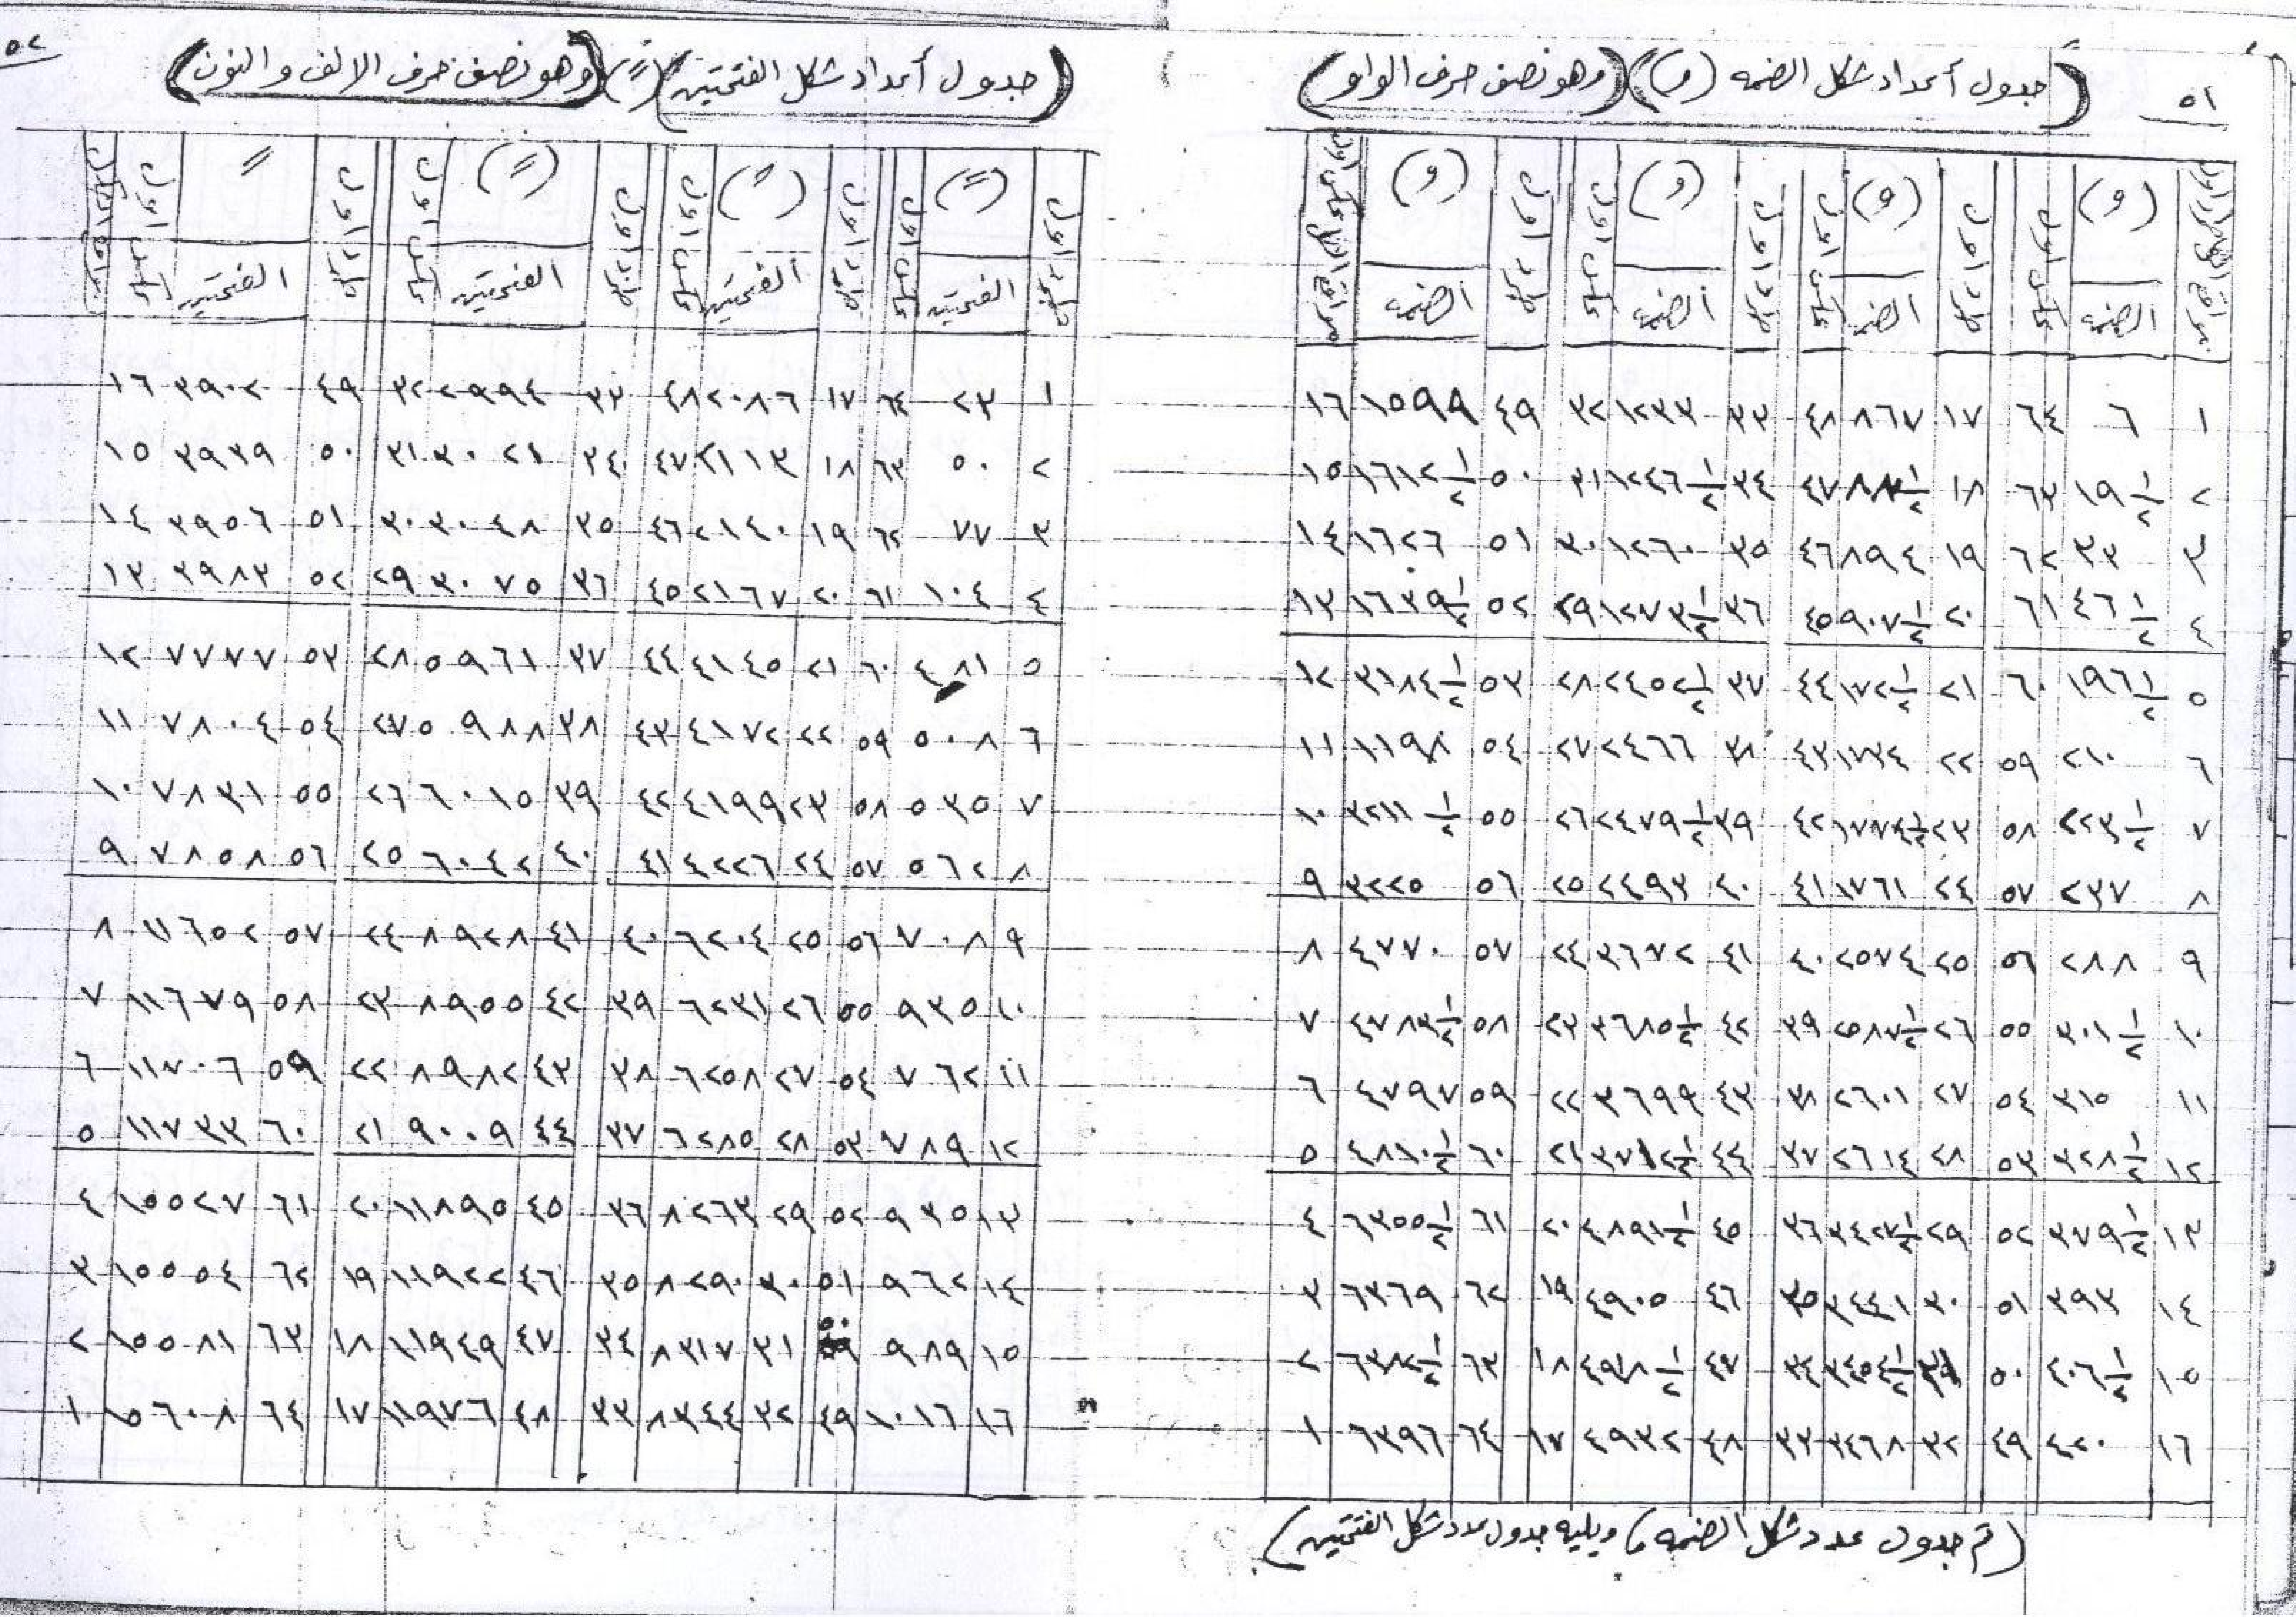 ٥١
(جدول أعداد شكل الضمه (و) (وهو نصف حرف الواو)
مراقع الاعداد طرد اول | (و) | عكس اول | طرد اول | (و) | عكس اول | طرد اول | (و) | عكس اول | طرد اول | (و)
الضمه | الضمه | الضمه | الضمه
١ ٦ ٦٤ ١٧ ٨٦٧ ٤٨ ٣٣ ١٢٣٣ ٣٢ ٤٩ ١٥٩٩ ١٦
٢ ١٩ ١/٢ ٦٣ ١٨ ٨٨٠ ١/٢ ٤٧ ٣٤ ١٢٤٦ ١/٢ ٣١ ٥٠ ١٦١٢ ١/٢ ١٥
٣ ٣٣ ٦٢ ١٩ ٨٩٤ ٤٦ ٣٥ ١٢٦٠ ٣٠ ٥١ ١٦٢٦ ١٤
٤ ٤٦ ١/٢ ٦١ ٢٠ ٩٠٧ ١/٢ ٤٥ ٣٦ ١٢٧٣ ١/٢ ٢٩ ٥٢ ١٦٣٩ ١/٢ ١٣
٥ ١٩٦ ١/٢ ٦٠ ٢١ ١٧٢ ١/٢ ٤٤ ٣٧ ٢٤٥٢ ١/٢ ٢٨ ٥٣ ٣١٨٤ ١/٢ ١٢
٦ ٢١٠ ٥٩ ٢٢ ١٧٣٤ ٤٣ ٣٨ ٢٤٦٦ ٢٧ ٥٤ ١١٩٨ ١١
٧ ٢٢٣ ١/٢ ٥٨ ٢٣ ١٧٤٧ ١/٢ ٤٢ ٣٩ ٢٤٧٩ ١/٢ ٢٦ ٥٥ ٣٢١١ ١/٢ ١٠
٨ ٢٣٧ ٥٧ ٢٤ ١٧٦١ ٤١ ٤٠ ٢٤٩٣ ٢٥ ٥٦ ٣٢٢٥ ٩
٩ ٢٨٨ ٥٦ ٢٥ ٢٥٧٤ ٤٠ ٤١ ٣٦٧٢ ٢٤ ٥٧ ٤٧٧٠ ٨
١٠ ٣٠١ ١/٢ ٥٥ ٢٦ ٢٥٨٧ ١/٢ ٣٩ ٤٢ ٣٦٨٥ ١/٢ ٢٣ ٥٨ ٤٧٨٣ ١/٢ ٧
١١ ٣١٥ ٥٤ ٢٧ ٢٦٠١ ٣٨ ٤٣ ٣٦٩٩ ٢٢ ٥٩ ٤٧٩٧ ٦
١٢ ٣٢٨ ١/٢ ٥٣ ٢٨ ٢٦١٤ ٣٧ ٤٤ ٣٧١٢ ١/٢ ٢١ ٦٠ ٤٨١٠ ١/٢ ٥
١٣ ٣٧٩ ١/٢ ٥٢ ٢٩ ٣٤٢٧ ١/٢ ٣٦ ٤٥ ٤٨٩١ ١/٢ ٢٠ ٦١ ٦٣٥٥ ١/٢ ٤
١٤ ٣٩٣ ٥١ ٣٠ ٣٤٤١ ٣٥ ٤٦ ٤٩٠٥ ١٩ ٦٢ ٦٣٦٩ ٣
١٥ ٤٠٦ ١/٢ ٥٠ ٣١ ٣٤٥٤ ١/٢ ٣٤ ٤٧ ٤٩١٨ ١/٢ ١٨ ٦٣ ٦٣٨٢ ١/٢ ٢
١٦ ٤٢٠ ٤٩ ٣٢ ٣٤٦٨ ٣٣ ٤٨ ٤٩٣٢ ١٧ ٦٤ ٦٣٩٦ ١
(تم جدول عدد شكل الضمه) ويليه جدول عدد شكل الفتحتين)
٥٢
(جدول أعداد شكل الفتحتين) (ً) (وهو نصف حرف الالف والنون)
طرد اول | (ً) | عكس اول | طرد اول | (ً) | عكس اول | طرد اول | (ً) | عكس اول | طرد اول | ً | عكس اول
الفتحتين | الفتحتين | الفتحتين | الفتحتين
١ ٢٣ ٦٤ ١٧ ٢٠٨٦ ٤٨ ٣٣ ٢٩٩٤ ٣٢ ٤٩ ٣٩٠٢ ١٦
٢ ٥٠ ٦٣ ١٨ ٢١١٣ ٤٧ ٣٤ ٣٠٢١ ٣١ ٥٠ ٣٩٣٩ ١٥
٣ ٧٧ ٦٢ ١٩ ٢١٤٠ ٤٦ ٣٥ ٣٠٤٨ ٣٠ ٥١ ٣٩٥٦ ١٤
٤ ١٠٤ ٦١ ٢٠ ٢١٦٧ ٤٥ ٣٦ ٣٠٧٥ ٢٩ ٥٢ ٣٩٨٣ ١٣
٥ ٤٨١ ٦٠ ٢١ ٤١٤٥ ٤٤ ٣٧ ٥٩٦١ ٢٨ ٥٣ ٧٧٧٧ ١٢
٦ ٥٠٨ ٥٩ ٢٢ ٤١٧٢ ٤٣ ٣٨ ٥٩٨٨ ٢٧ ٥٤ ٧٨٠٤ ١١
٧ ٥٣٥ ٥٨ ٢٣ ٤١٩٩ ٤٢ ٣٩ ٦٠١٥ ٢٦ ٥٥ ٧٨٣١ ١٠
٨ ٥٦٢ ٥٧ ٢٤ ٤٢٢٦ ٤١ ٤٠ ٦٠٤٢ ٢٥ ٥٦ ٧٨٥٨ ٩
٩ ٧٠٨ ٥٦ ٢٥ ٦٢٠٤ ٤٠ ٤١ ٨٩٢٨ ٢٤ ٥٧ ١١٦٥٢ ٨
١٠ ٩٣٥ ٥٥ ٢٦ ٦٢٣١ ٣٩ ٤٢ ٨٩٥٥ ٢٣ ٥٨ ١١٦٧٩ ٧
١١ ٧٦٢ ٥٤ ٢٧ ٦٢٥٨ ٣٨ ٤٣ ٨٩٨٢ ٢٢ ٥٩ ١١٧٠٦ ٦
١٢ ٧٨٩ ٥٣ ٢٨ ٦٢٨٥ ٣٧ ٤٤ ٩٠٠٩ ٢١ ٦٠ ١١٧٣٣ ٥
١٣ ٩٣٥ ٥٢ ٢٩ ٨٢٦٣ ٣٦ ٤٥ ١١٨٩٥ ٢٠ ٦١ ١٥٥٢٧ ٤
١٤ ٩٦٢ ٥١ ٣٠ ٨٢٩٠ ٣٥ ٤٦ ١١٩٢٢ ١٩ ٦٢ ١٥٥٥٤ ٣
١٥ ٩٨٩ ٥٠ ٣١ ٨٣١٧ ٣٤ ٤٧ ١١٩٤٩ ١٨ ٦٣ ١٥٥٨١ ٢
١٦ ١٠١٦ ٤٩ ٣٢ ٨٣٤٤ ٣٣ ٤٨ ١١٩٧٦ ١٧ ٦٤ ١٥٦٠٨ ١